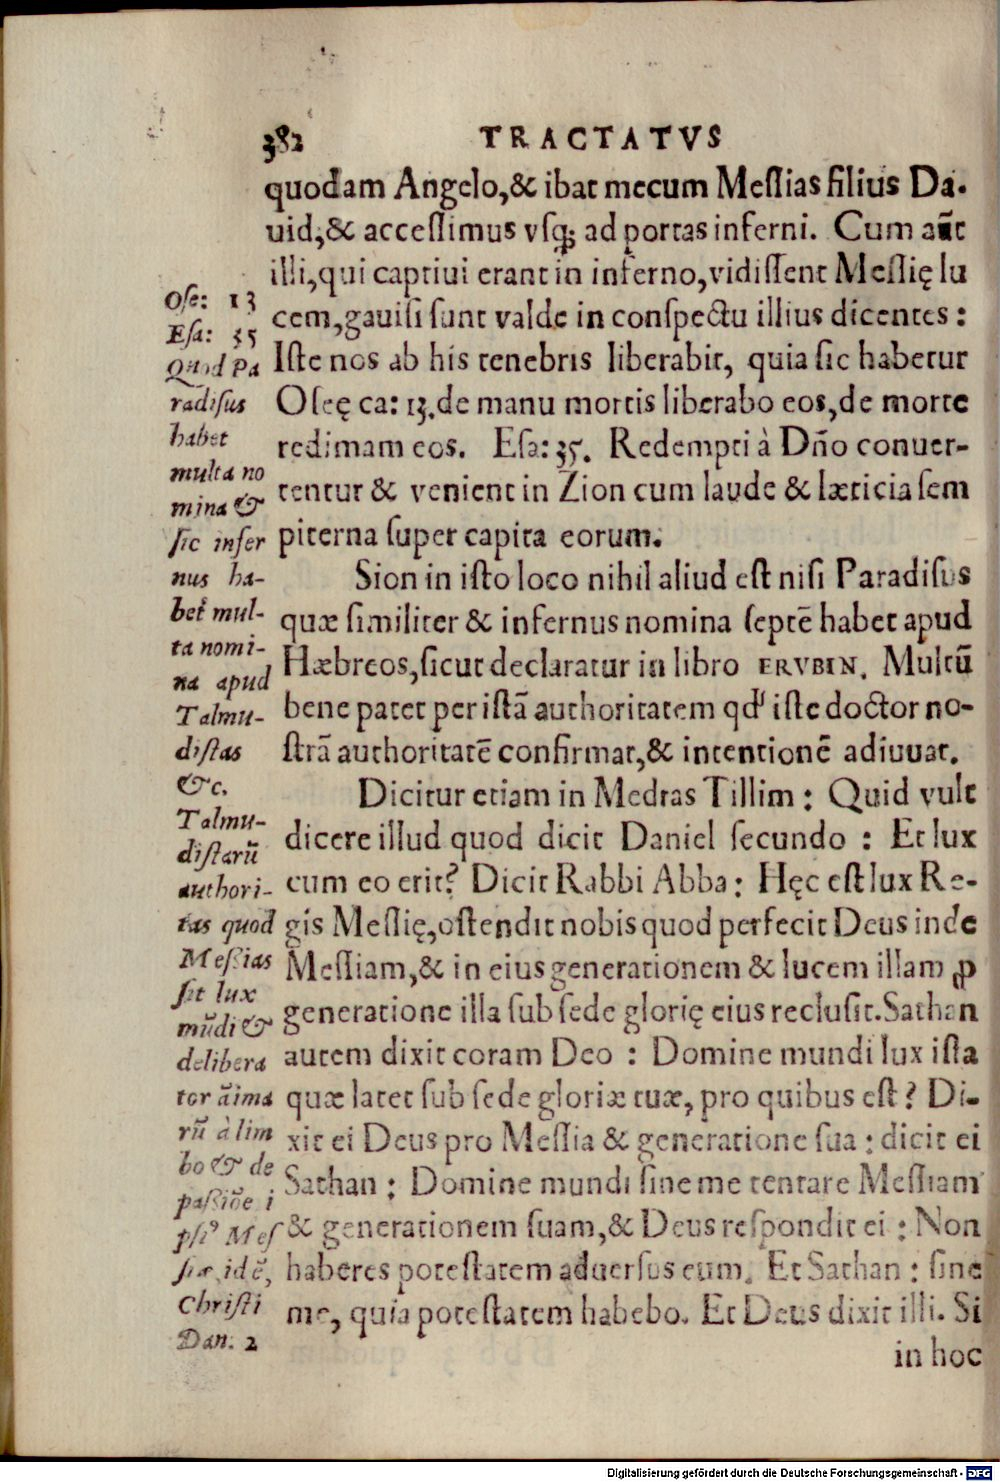 382 TRACTATVS
quodam Angelo,& ibat mecum Meſſias filius Da-
uid,& acceſſimus vſq; ad portas inferni. Cum aūt
illi,qui captiui erant in inferno,vidiſſent Meſſię lu
cem,gauiſi ſunt valde in conſpectu illius dicentes:
Iſte nos ab his tenebris liberabit, quia ſic habetur
Oſeę ca: 13.de manu mortis liberabo eos,de morte
redimam eos. Eſa: 35. Redempti à Dño conuer-
tentur & venient in Zion cum laude & læticia ſem
piterna ſuper capita eorum.
Sion in iſto loco nihil aliud eſt niſi Paradiſus
quæ ſimiliter & infernus nomina ſeptē habet apud
Hæbreos,ſicut declaratur in libro ERVBIN. Multū
bene patet per iſtā authoritatem qd' iſte doctor no-
ſtrā authoritatē confirmat,& intentionē adiuuat.
Dicitur etiam in Medras Tillim: Quid vult
dicere illud quod dicit Daniel ſecundo : Et lux
cum eo erit? Dicit Rabbi Abba: Hęc eſt lux Re-
gis Meſſię,oſtendit nobis quod perfecit Deus inde
Meſſiam,& in eius generationem & lucem illam ꝓ
generatione illa ſub ſede glorię eius recluſit.Sathan
autem dixit coram Deo : Domine mundi lux iſta
quæ latet ſub ſede gloriæ tuæ, pro quibus eſt? Di-
xit ei Deus pro Meſſia & generatione ſua : dicit ei
Sathan : Domine mundi ſine me tentare Meſſiam
& generationem ſuam,& Deus reſpondit ei : Non
haberes poteſtatem aduerſus eum. Et Sathan : ſine
me, quia poteſtatem habebo. Et Deus dixit illi. Si
in hoc
Oſe: 13
Eſa: 35
Quod Pa
radiſus
habet
multa no
mina &
ſic infer
nus ha-
bet mul-
ta nomi-
na apud
Talmu-
diſtas
&c.
Talmu-
diſtarū
authori-
tas quod
Meſsias
ſit lux
mūdi &
delibera
tor āima
rū à lim
bo & de
paſsiōe i
pſiꝰ Meſ
ſiæ, idē,
Chriſti
Dan. 2
Digitalisierung gefördert durch die Deutsche Forschungsgemeinschaft - DFG